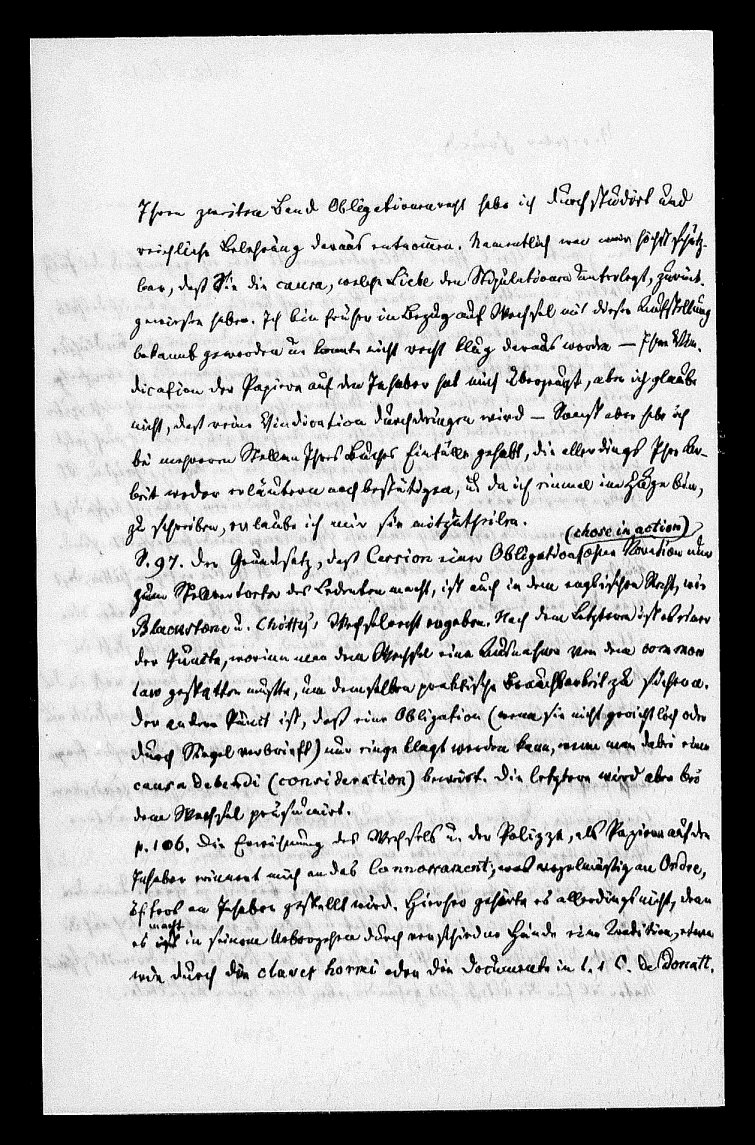 Ihren zweiten Band Obligationenrecht habe ich durchstudirt und
reichliche Belehrung daraus entnommen. Namentlich war mir höchst schätz-
bar, daß Sie die causa, welche Liebe den Stipulationen unterlegt, zurück-
gewiesen haben. Ich bin früher in Bezug auf Wechsel mit dieser Aufstellung
bekannt geworden u. konnte nicht recht klug daraus werden – Ihre Vin-
dication der Papiere auf den Inhaber hat mich überzeugt, aber ich glaube
nicht, daß reine Vindication durchdringen wird – Sonst aber habe ich
bei mehreren Stellen Ihres Buches Einfälle gehabt, die allerdings Ihre Ar-
beit weder erläutern noch bestätigen, u. da ich einmal im Zuge bin,
zu schreiben, erlaube ich mir sie mitzutheilen.
(chose in action)
S. 97. Der Grundsatz, daß Cession einer Obligation ohne Novation nur
zum Stellvertreter des Cedenten macht, ist auch in dem englischen Recht, wie
Blackstone u. Chitty's Wechselrecht ergeben. Nach dem Letztern ist es einer
der Punkte, worin man dem Wechsel eine Ausnahme von dem common
law gestatten mußte, um demselben praktische Brauchbarkeit zu sichern.
Der andere Punct ist, daß eine Obligation (wenn sie nicht gerichtlich oder
durch Siegel verbrieft) nur eingeklagt werden kann, wenn man dabei eine
causa debendi (consideration) beweist. Die letztere wird aber bei
dem Wechsel präsumirt.
p. 106. Die Erwähnung des Wechsels u. der Polizze, als Papiere auf den
Inhaber erinnert mich an das Connossament, was regelmäßig an Ordre,
öfters an Inhaber gestellt wird. Hierher gehört es allerdings nicht, denn
macht
es ist in seinem Uebergehen durch verschiedne Hände eine Tradition, etwa
wie durch die claves horrei oder die Documente in l. 1 C. de Donatt.